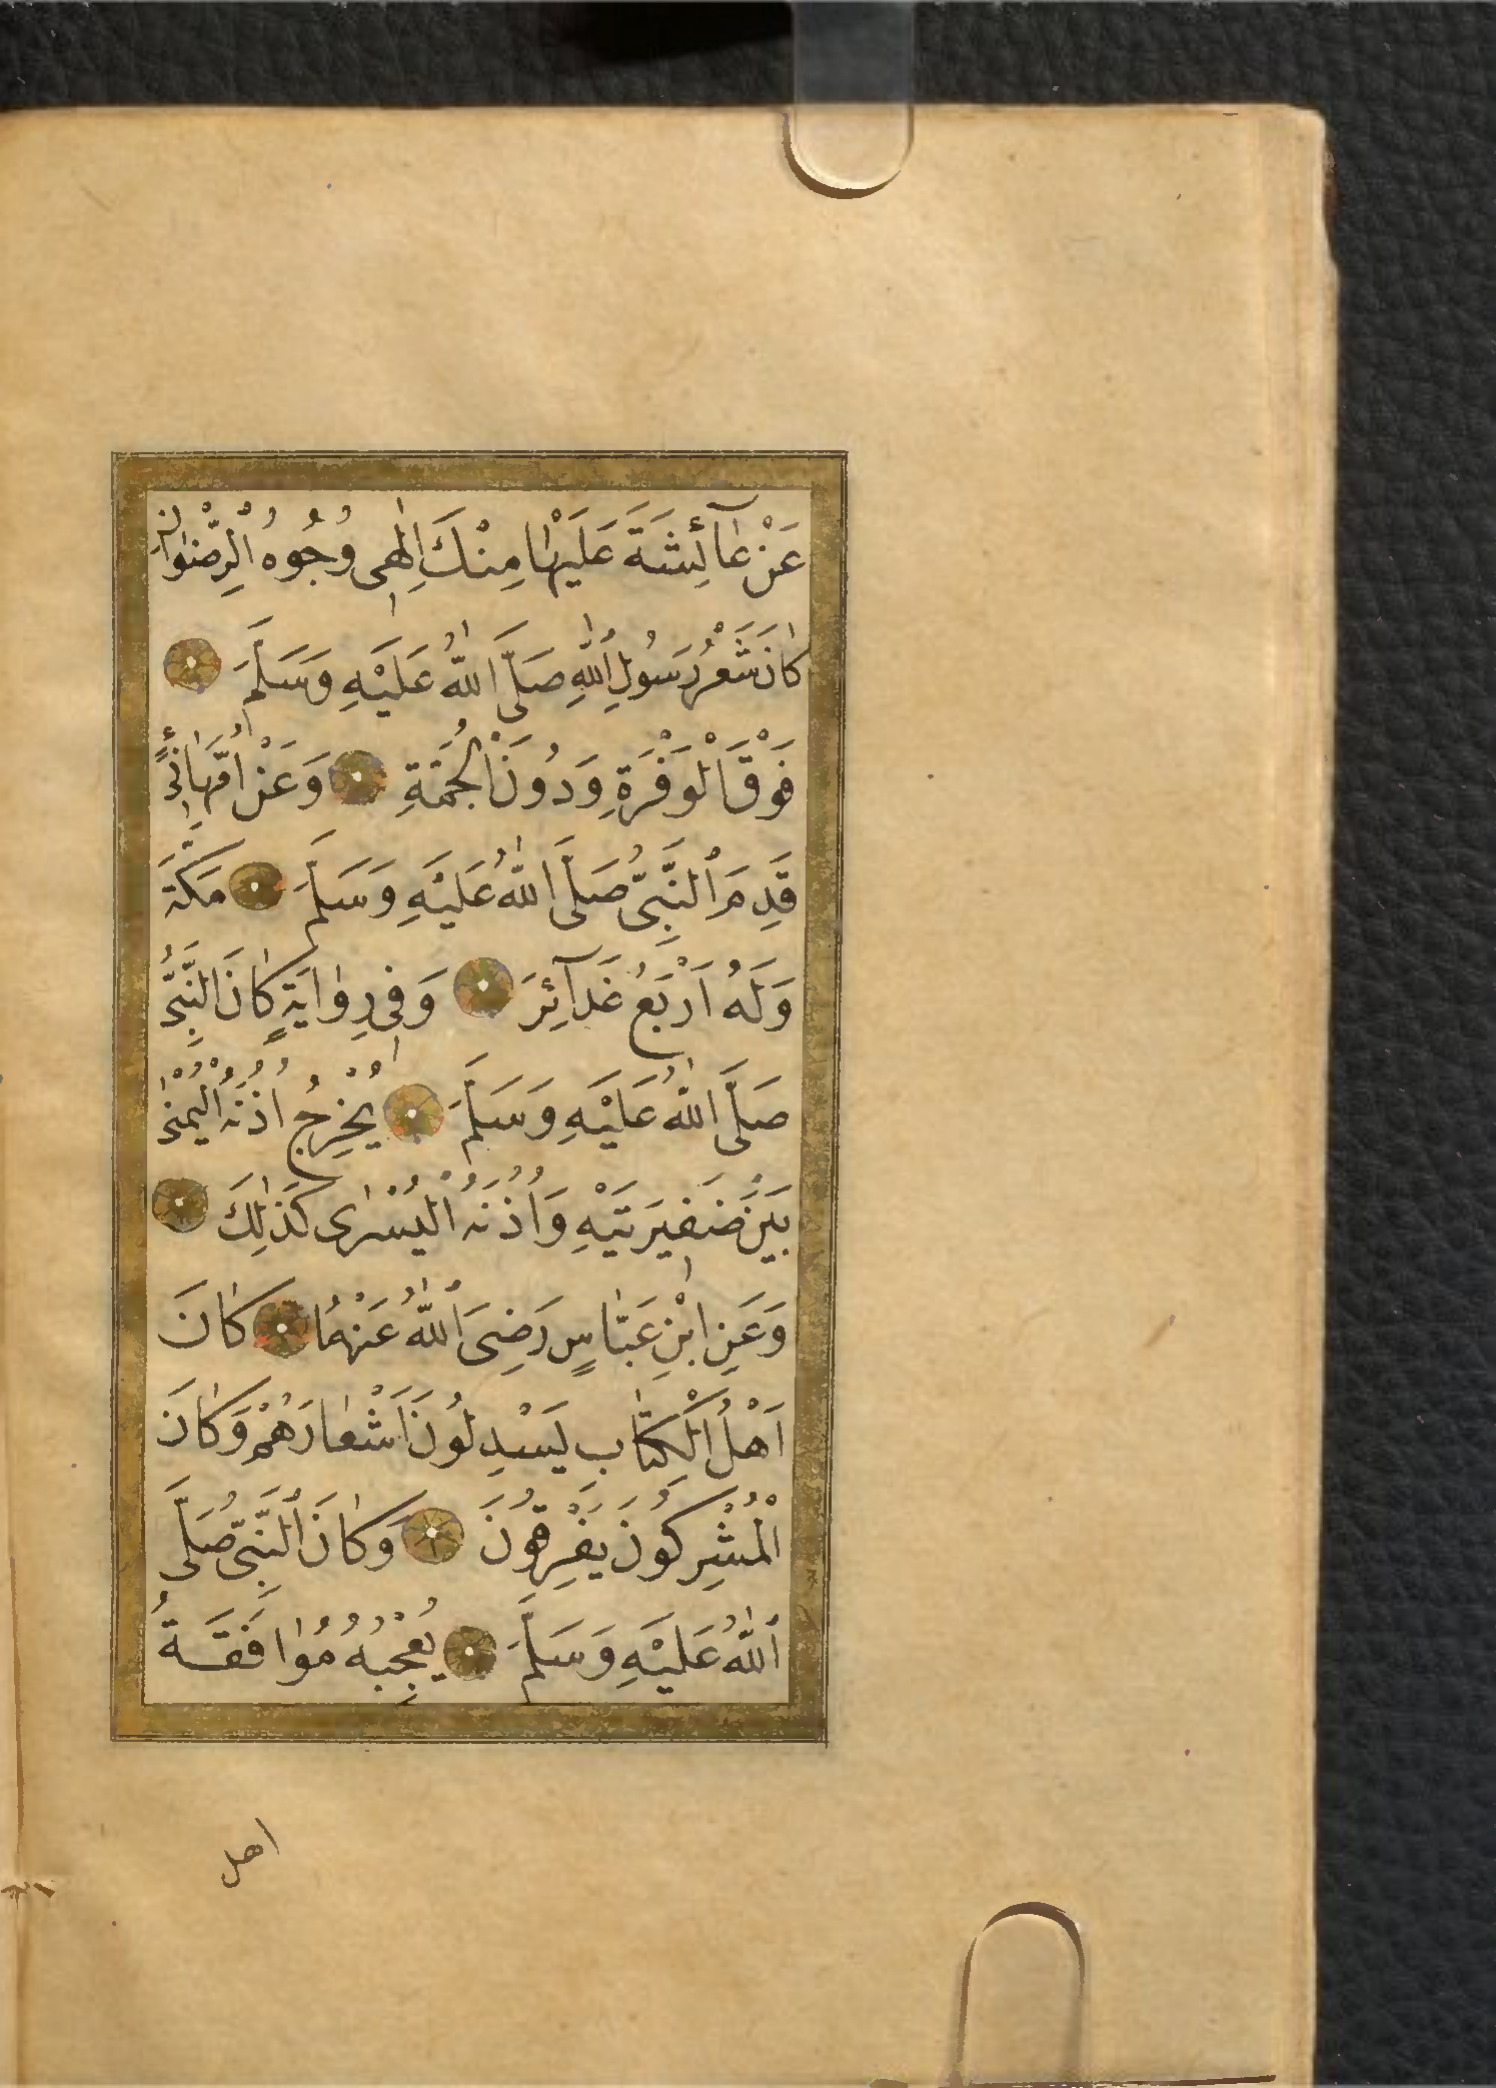 عَنْ عَآئِشَةَ عَلَيْهَا مِنْكَ اِلٰهِى وُجُوهُ الْرِّضْوَانِ
كَانَ شَعْرُ رَسُولِ اللّٰهِ صَلَّى اللّٰهُ عَلَيْهِ وَسَلَّمَ
فَوْقَ الْوَفْرَةِ وَدُونَ الْجُمَّةِ وَعَنْ اُمِّ هَانِئٍ
قَدِمَ النَّبِىُّ صَلَّى اللّٰهُ عَلَيْهِ وَسَلَّمَ مَكَّةَ
وَلَهُ اَرْبَعُ غَدَآئِرَ وَفِى رِوَايَةٍ كَانَ النَّبِىُّ
صَلَّى اللّٰهُ عَلَيْهِ وَسَلَّمَ يُخْرِجُ اُذُنَهُ الْيُمْنٰى
بَيْنَ ضَفِيرَتَيْهِ وَاُذُنَهُ الْيُسْرٰى كَذٰلِكَ
وَعَنِ ابْنِ عَبَّاسٍ رَضِىَ اللّٰهُ عَنْهُمَا كَانَ
اَهْلُ الْكِتَابِ يَسْدِلُونَ اَشْعَارَهُمْ وَكَانَ
الْمُشْرِكُونَ يَفْرِقُونَ وَكَانَ النَّبِىُّ صَلَّى
اللّٰهُ عَلَيْهِ وَسَلَّمَ يُعْجِبُهُ مُوَافَقَةُ
اهل